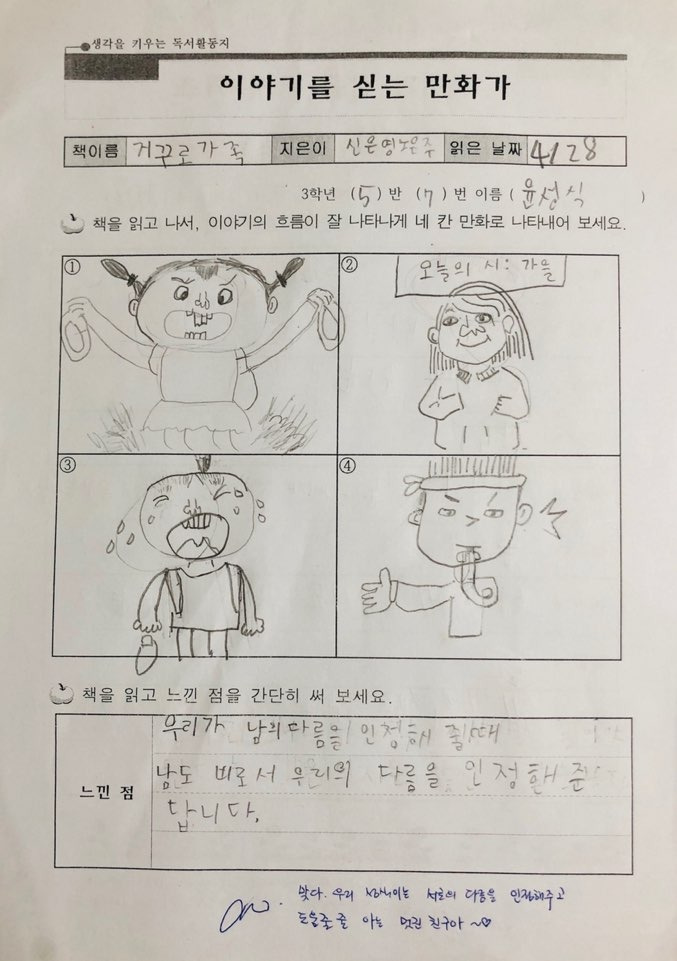 생각을 키우는 독서활동지
이야기를 싣는 만화가
책이름 거꾸로가족 지은이 신은영 노은주 읽은 날짜 4/28
3학년 (5) 반 (7) 번 이름 (윤성식)
책을 읽고 나서, 이야기의 흐름이 잘 나타나게 네 칸 만화로 나타내어 보세요.
① ②
오늘의 시: 가을
③ ④
책을 읽고 느낀 점을 간단히 써 보세요.
느낀 점
우리가 남의다름을 인정해 줄때
남도 비로서 우리의 다름을 인정해준
답니다.
맞다. 우리 서로의 다름을 인정해주고
도울줄 아는 멋진 친구야~♡